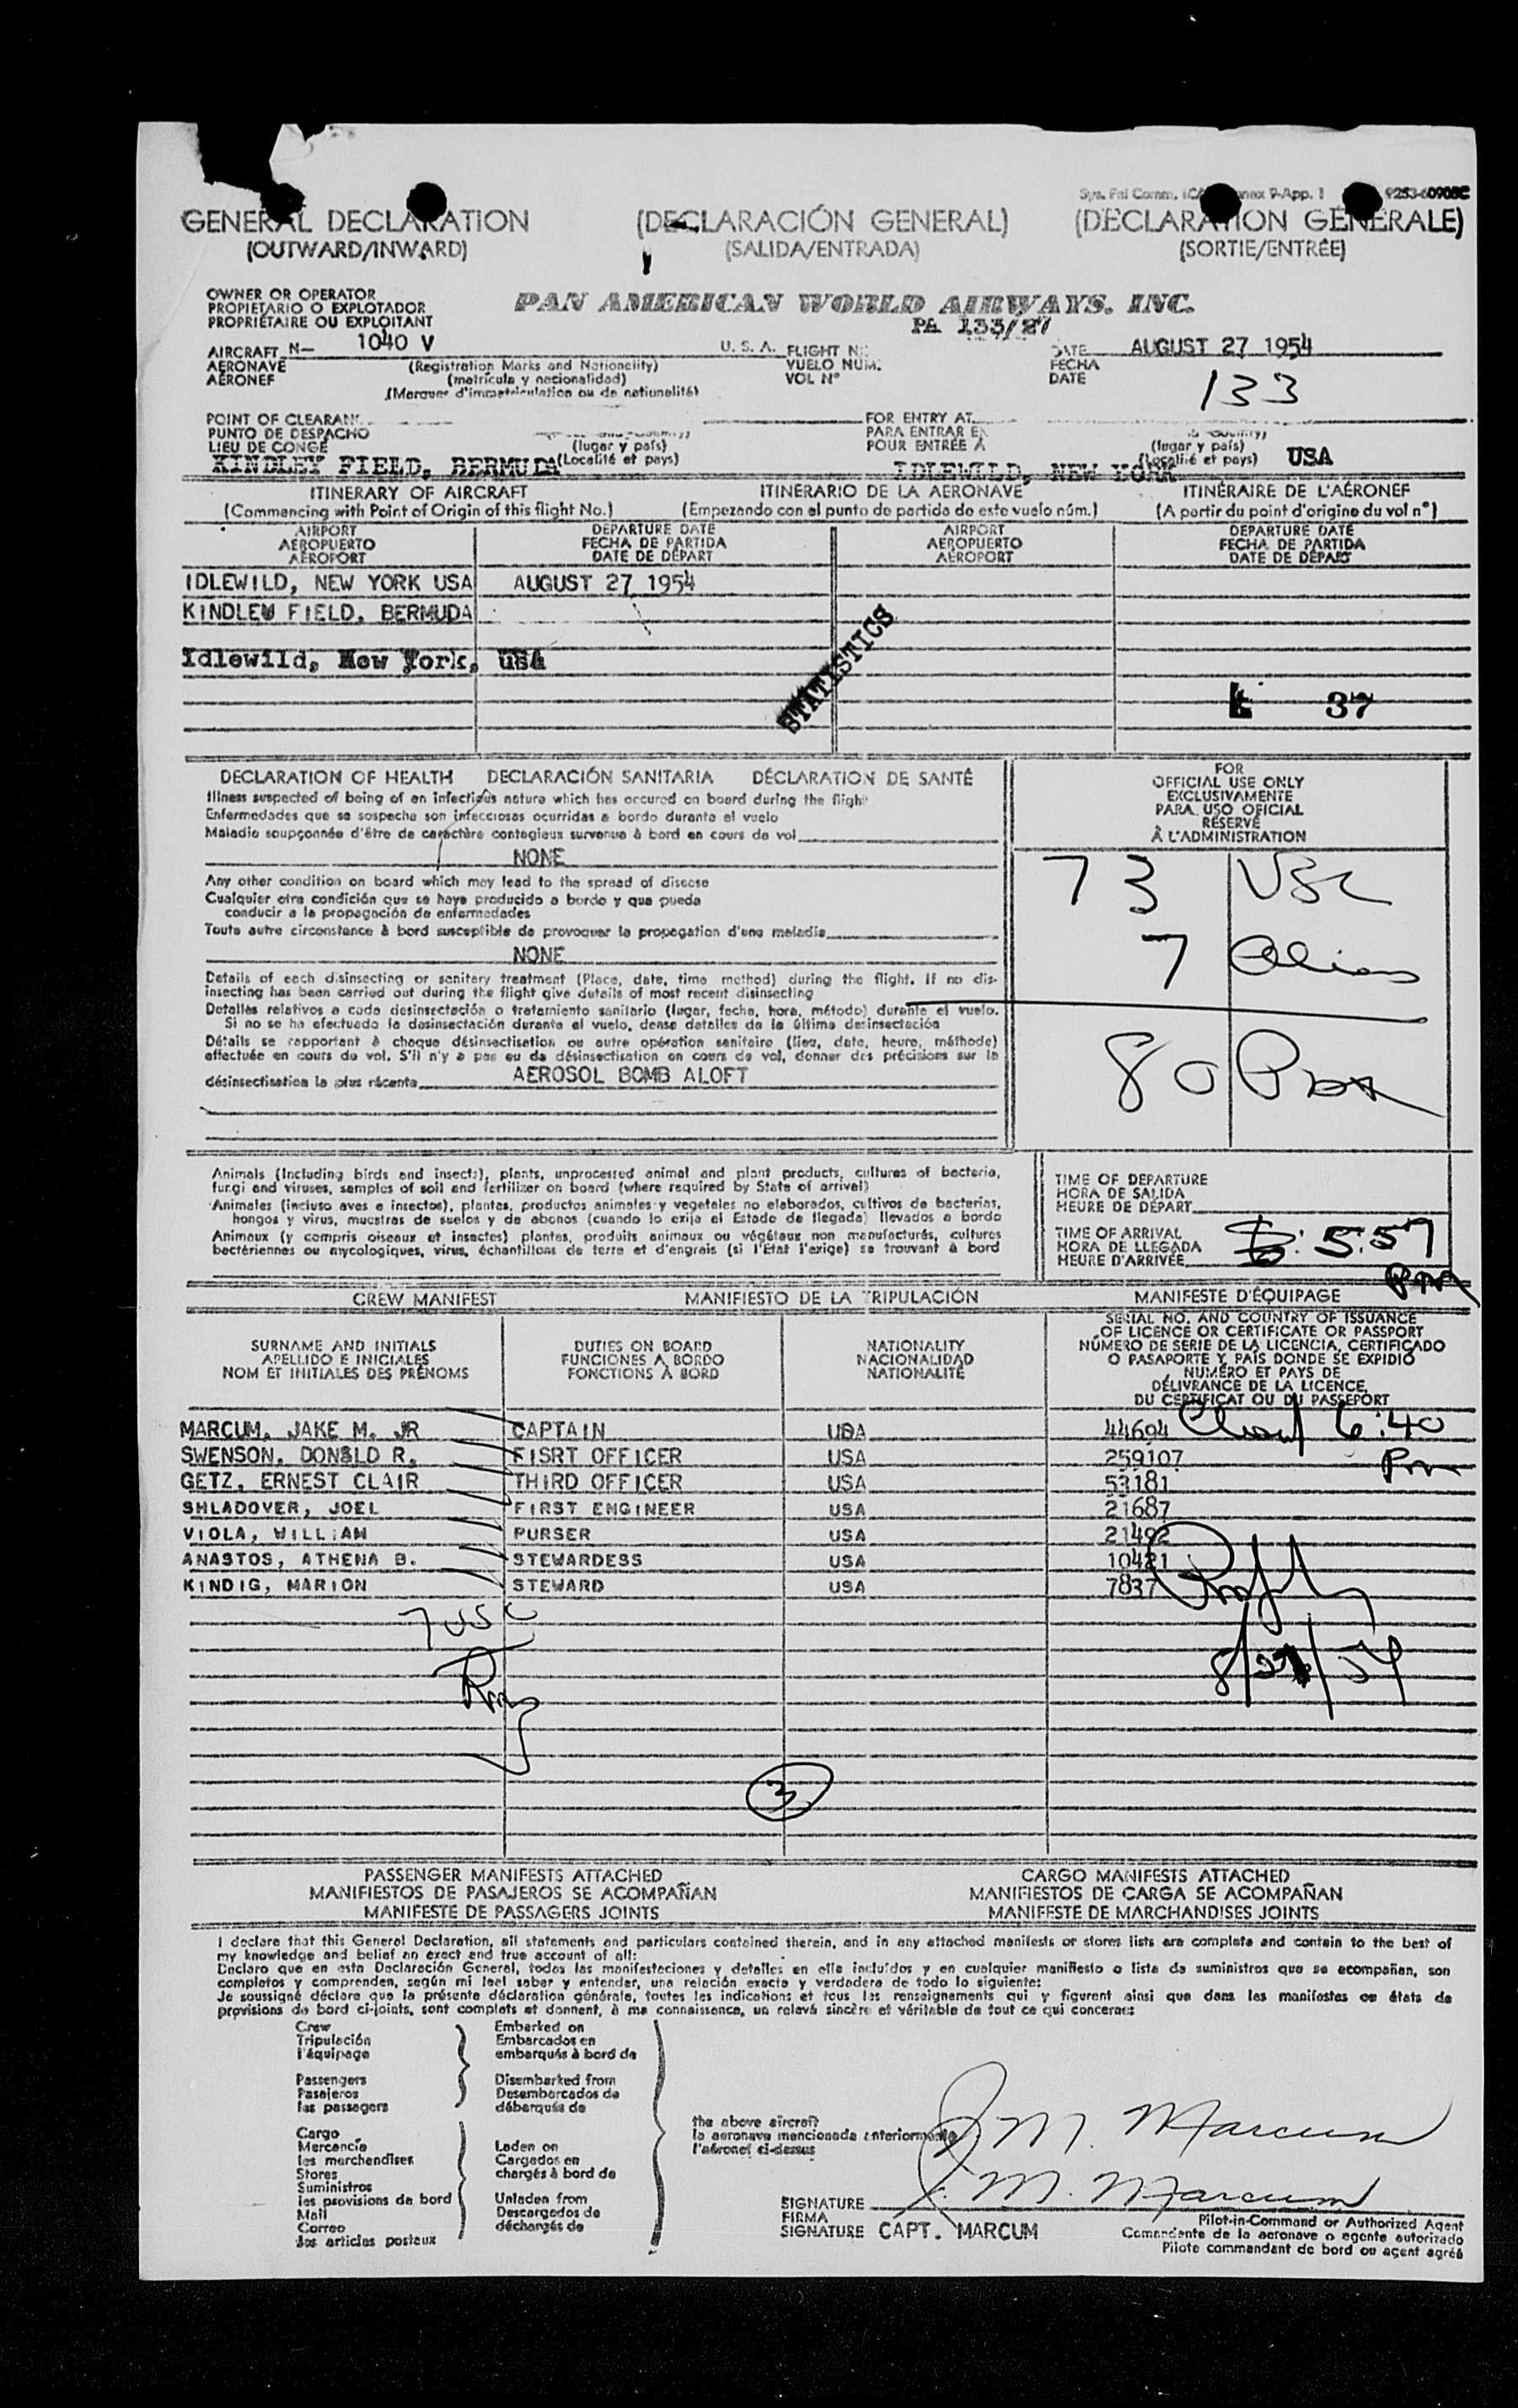 Sys. Fal Comm. ICAO Annex 9-App. 1 9253-60908C
GENERAL DECLARATION (DECLARACIÓN GENERAL) (DÉCLARATION GÉNÉRALE)
(OUTWARD/INWARD) (SALIDA/ENTRADA) (SORTIE/ENTRÉE)
OWNER OR OPERATOR
PROPIETARIO O EXPLOTADOR
PROPRIÉTAIRE OU EXPLOITANT
PAN AMERICAN WORLD AIRWAYS, INC.
PA 133/27
AIRCRAFT N- 1040 V U. S. A. FLIGHT N DATE AUGUST 27 1954
AERONAVE (Registration Marks and Nationality) VUELO NUM. FECHA
AÉRONEF (matrícula y nacionalidad) VOL N° DATE 133
(Marques d'immatriculation ou de nationalité)
POINT OF CLEARANC FOR ENTRY AT
PUNTO DE DESPACHO PARA ENTRAR EN
LIEU DE CONGÉ (lugar y país) POUR ENTRÉE À (lugar y país)
KINDLEY FIELD, BERMUDA (Localité et pays) IDLEWILD, NEW YORK (Localité et pays) USA
ITINERARY OF AIRCRAFT ITINERARIO DE LA AERONAVE ITINÉRAIRE DE L'AÉRONEF
(Commencing with Point of Origin of this flight No.) (Empezando con el punto de partida de este vuelo núm.) (A partir du point d'origine du vol n°)
AIRPORT DEPARTURE DATE AIRPORT DEPARTURE DATE
AEROPUERTO FECHA DE PARTIDA AEROPUERTO FECHA DE PARTIDA
AÉROPORT DATE DE DÉPART AÉROPORT DATE DE DÉPART
IDLEWILD, NEW YORK USA AUGUST 27 1954
KINDLEW FIELD, BERMUDA
Idlewild, New York, USA
STATISTICS
37
DECLARATION OF HEALTH DECLARACIÓN SANITARIA DÉCLARATION DE SANTÉ
Illness suspected of being of an infectious nature which has occured on board during the flight
Enfermedades que se sospecha son infecciosas ocurridas a bordo durante el vuelo
Maladie soupçonnée d'être de caractère contagieux survenue à bord en cours de vol
NONE
Any other condition on board which may lead to the spread of disease
Cualquier otra condición que se haya producido a bordo y que pueda
conducir a la propagación de enfermedades
Toute autre circonstance à bord susceptible de provoquer la propagation d'une maladie
NONE
Details of each disinsecting or sanitary treatment (Place, date, time method) during the flight. If no dis-
insecting has been carried out during the flight give details of most recent disinsecting
Detalles relativos a cada desinsectación o tratamiento sanitario (lugar, fecha, hora, método) durante el vuelo.
Si no se ha efectuado la desinsectación durante el vuelo, dense detalles de la última desinsectación
Détails se rapportant à chaque désinsectisation ou autre opération sanitaire (lieu, date, heure, méthode)
effectuée en cours de vol. S'il n'y a pas eu de désinsectisation en cours de vol, donner des précisions sur la
désinsectisation la plus récente AEROSOL BOMB ALOFT
FOR
OFFICIAL USE ONLY
EXCLUSIVAMENTE
PARA USO OFICIAL
RÉSERVÉ
À L'ADMINISTRATION
73 USC
7 Aliens
80
Animals (Including birds and insects), plants, unprocessed animal and plant products, cultures of bacteria,
fungi and viruses, samples of soil and fertilizer on board (where required by State of arrival)
Animales (incluso aves e insectos), plantas, productos animales y vegetales no elaborados, cultivos de bacterias,
hongos y virus, muestras de suelos y de abonos (cuando lo exija el Estado de llegada) llevados a bordo
Animaux (y compris oiseaux et insectes) plantes, produits animaux ou végétaux non manufacturés, cultures
bactériennes ou mycologiques, virus, échantillons de terre et d'engrais (si l'État l'exige) se trouvant à bord
TIME OF DEPARTURE
HORA DE SALIDA
HEURE DE DÉPART
TIME OF ARRIVAL
HORA DE LLEGADA 5:57
HEURE D'ARRIVÉE PM
CREW MANIFEST MANIFIESTO DE LA TRIPULACIÓN MANIFESTE D'ÉQUIPAGE
SURNAME AND INITIALS
APELLIDO E INICIALES
NOM ET INITIALES DES PRÉNOMS
DUTIES ON BOARD
FUNCIONES A BORDO
FONCTIONS À BORD
NATIONALITY
NACIONALIDAD
NATIONALITÉ
SERIAL NO. AND COUNTRY OF ISSUANCE
OF LICENCE OR CERTIFICATE OR PASSPORT
NÚMERO DE SERIE DE LA LICENCIA, CERTIFICADO
O PASAPORTE Y PAÍS DONDE SE EXPIDIÓ
NUMÉRO ET PAYS DE
DÉLIVRANCE DE LA LICENCE,
DU CERTIFICAT OU DU PASSEPORT
MARCUM, JAKE M. JR CAPTAIN USA 44694 6:40
SWENSON, DONALD R. FISRT OFFICER USA 259107 PM
GETZ, ERNEST CLAIR THIRD OFFICER USA 53181
SHLADOVER, JOEL FIRST ENGINEER USA 21687
VIOLA, WILLIAM PURSER USA 21492
ANASTOS, ATHENA B. STEWARDESS USA 10421
KINDIG, MARION STEWARD USA 7837
7 USC
8/27/54
3
PASSENGER MANIFESTS ATTACHED CARGO MANIFESTS ATTACHED
MANIFIESTOS DE PASAJEROS SE ACOMPAÑAN MANIFIESTOS DE CARGA SE ACOMPAÑAN
MANIFESTE DE PASSAGERS JOINTS MANIFESTE DE MARCHANDISES JOINTS
I declare that this General Declaration, all statements and particulars contained therein, and in any attached manifests or stores lists are complete and contain to the best of
my knowledge and belief an exact and true account of all:
Declaro que en esta Declaración General, todas las manifestaciones y detalles en ella incluídos y en cualquier manifiesto o lista de suministros que se acompañan, son
completos y comprenden, según mi leal saber y entender, una relación exacta y verdadera de todo lo siguiente:
Je soussigné déclare que la présente déclaration générale, toutes les indications et tous les renseignements qui y figurent ainsi que dans les manifestes ou états de
provisions de bord ci-joints, sont complets et donnent, à ma connaissance, un relevé sincère et véritable de tout ce qui concerne:
Crew Embarked on
Tripulación Embarcados en
l'équipage embarqués à bord de
Passengers Disembarked from
Pasajeros Desembarcados de
les passagers débarqués de
Cargo
Mercancía Laden on
les marchandises Cargados en
Stores chargés à bord de
Suministros
les provisions de bord Unladen from
Mail Descargados de
Correo déchargés de
les articles postaux
the above aircraft
la aeronave mencionada anteriormente
l'aéronef ci-dessus
J M. Marcum
SIGNATURE J. M. Marcum
FIRMA Pilot-in-Command or Authorized Agent
SIGNATURE CAPT. MARCUM Comandante de la aeronave o agente autorizado
Pilote commandant de bord ou agent agréé